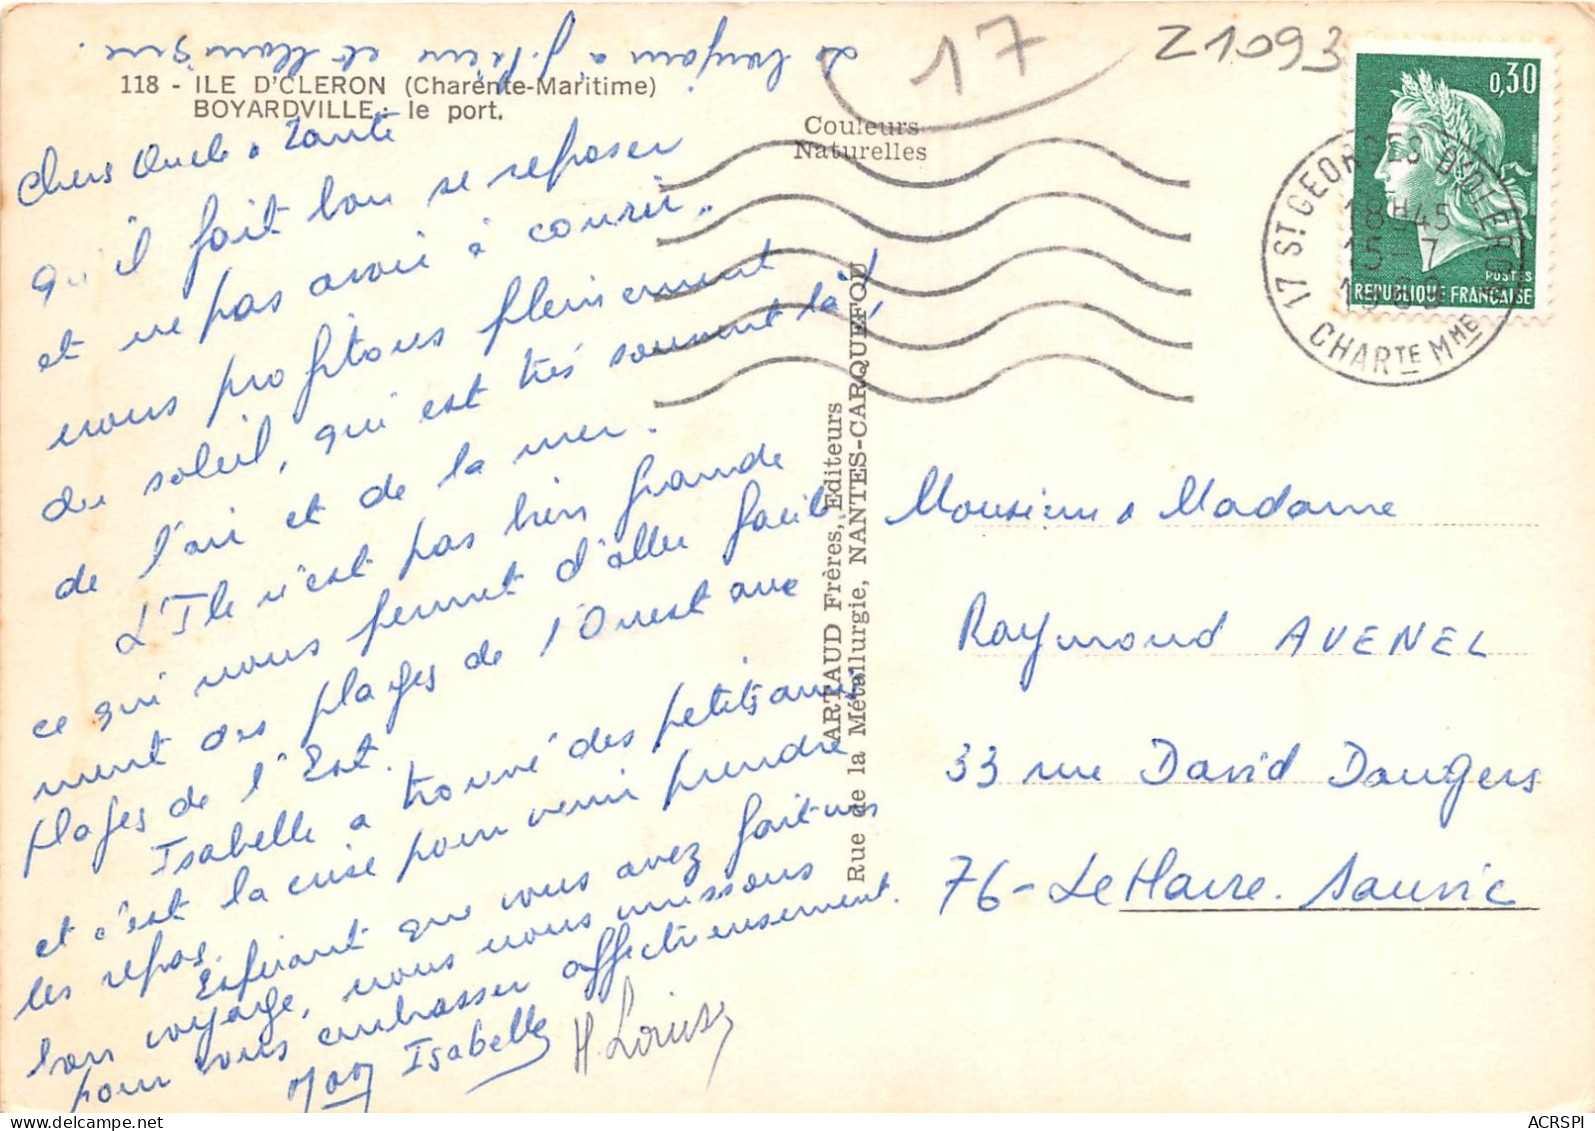 17
Z1093
118 - ILE D'CLERON (Charente-Maritime)
BOYARDVILLE : le port.
Couleurs
Naturelles
Chers Oncle & Tante
qu'il fait bon se reposer
et ne pas avoir à courir.
nous profitons pleinement
du soleil, qui est très souvent là !
de l'air et de la mer.
L'Ile n'est pas bien grande
ce qui nous permet d'aller facile-
ment des plages de l'Ouest aux
plages de l'Est.
Isabelle a trouvé des petits amis
et c'est la crise pour venir prendre
les repas.
Espérant que vous avez fait un
bon voyage, nous nous unissons
pour vous embrasser affectueusement.
Isabelle
ARTAUD Frères, Editeurs
Rue de la Métallurgie, NANTES-CARQUEFOU
0,30
POSTES
REPUBLIQUE FRANÇAISE
17 ST GEORGES D'OLERON
18H45
15-7
CHARTE MME
Monsieur & Madame
Raymond AVENEL
33 rue David Daugers
76 - Le Havre. Sanvic
ACRSPI